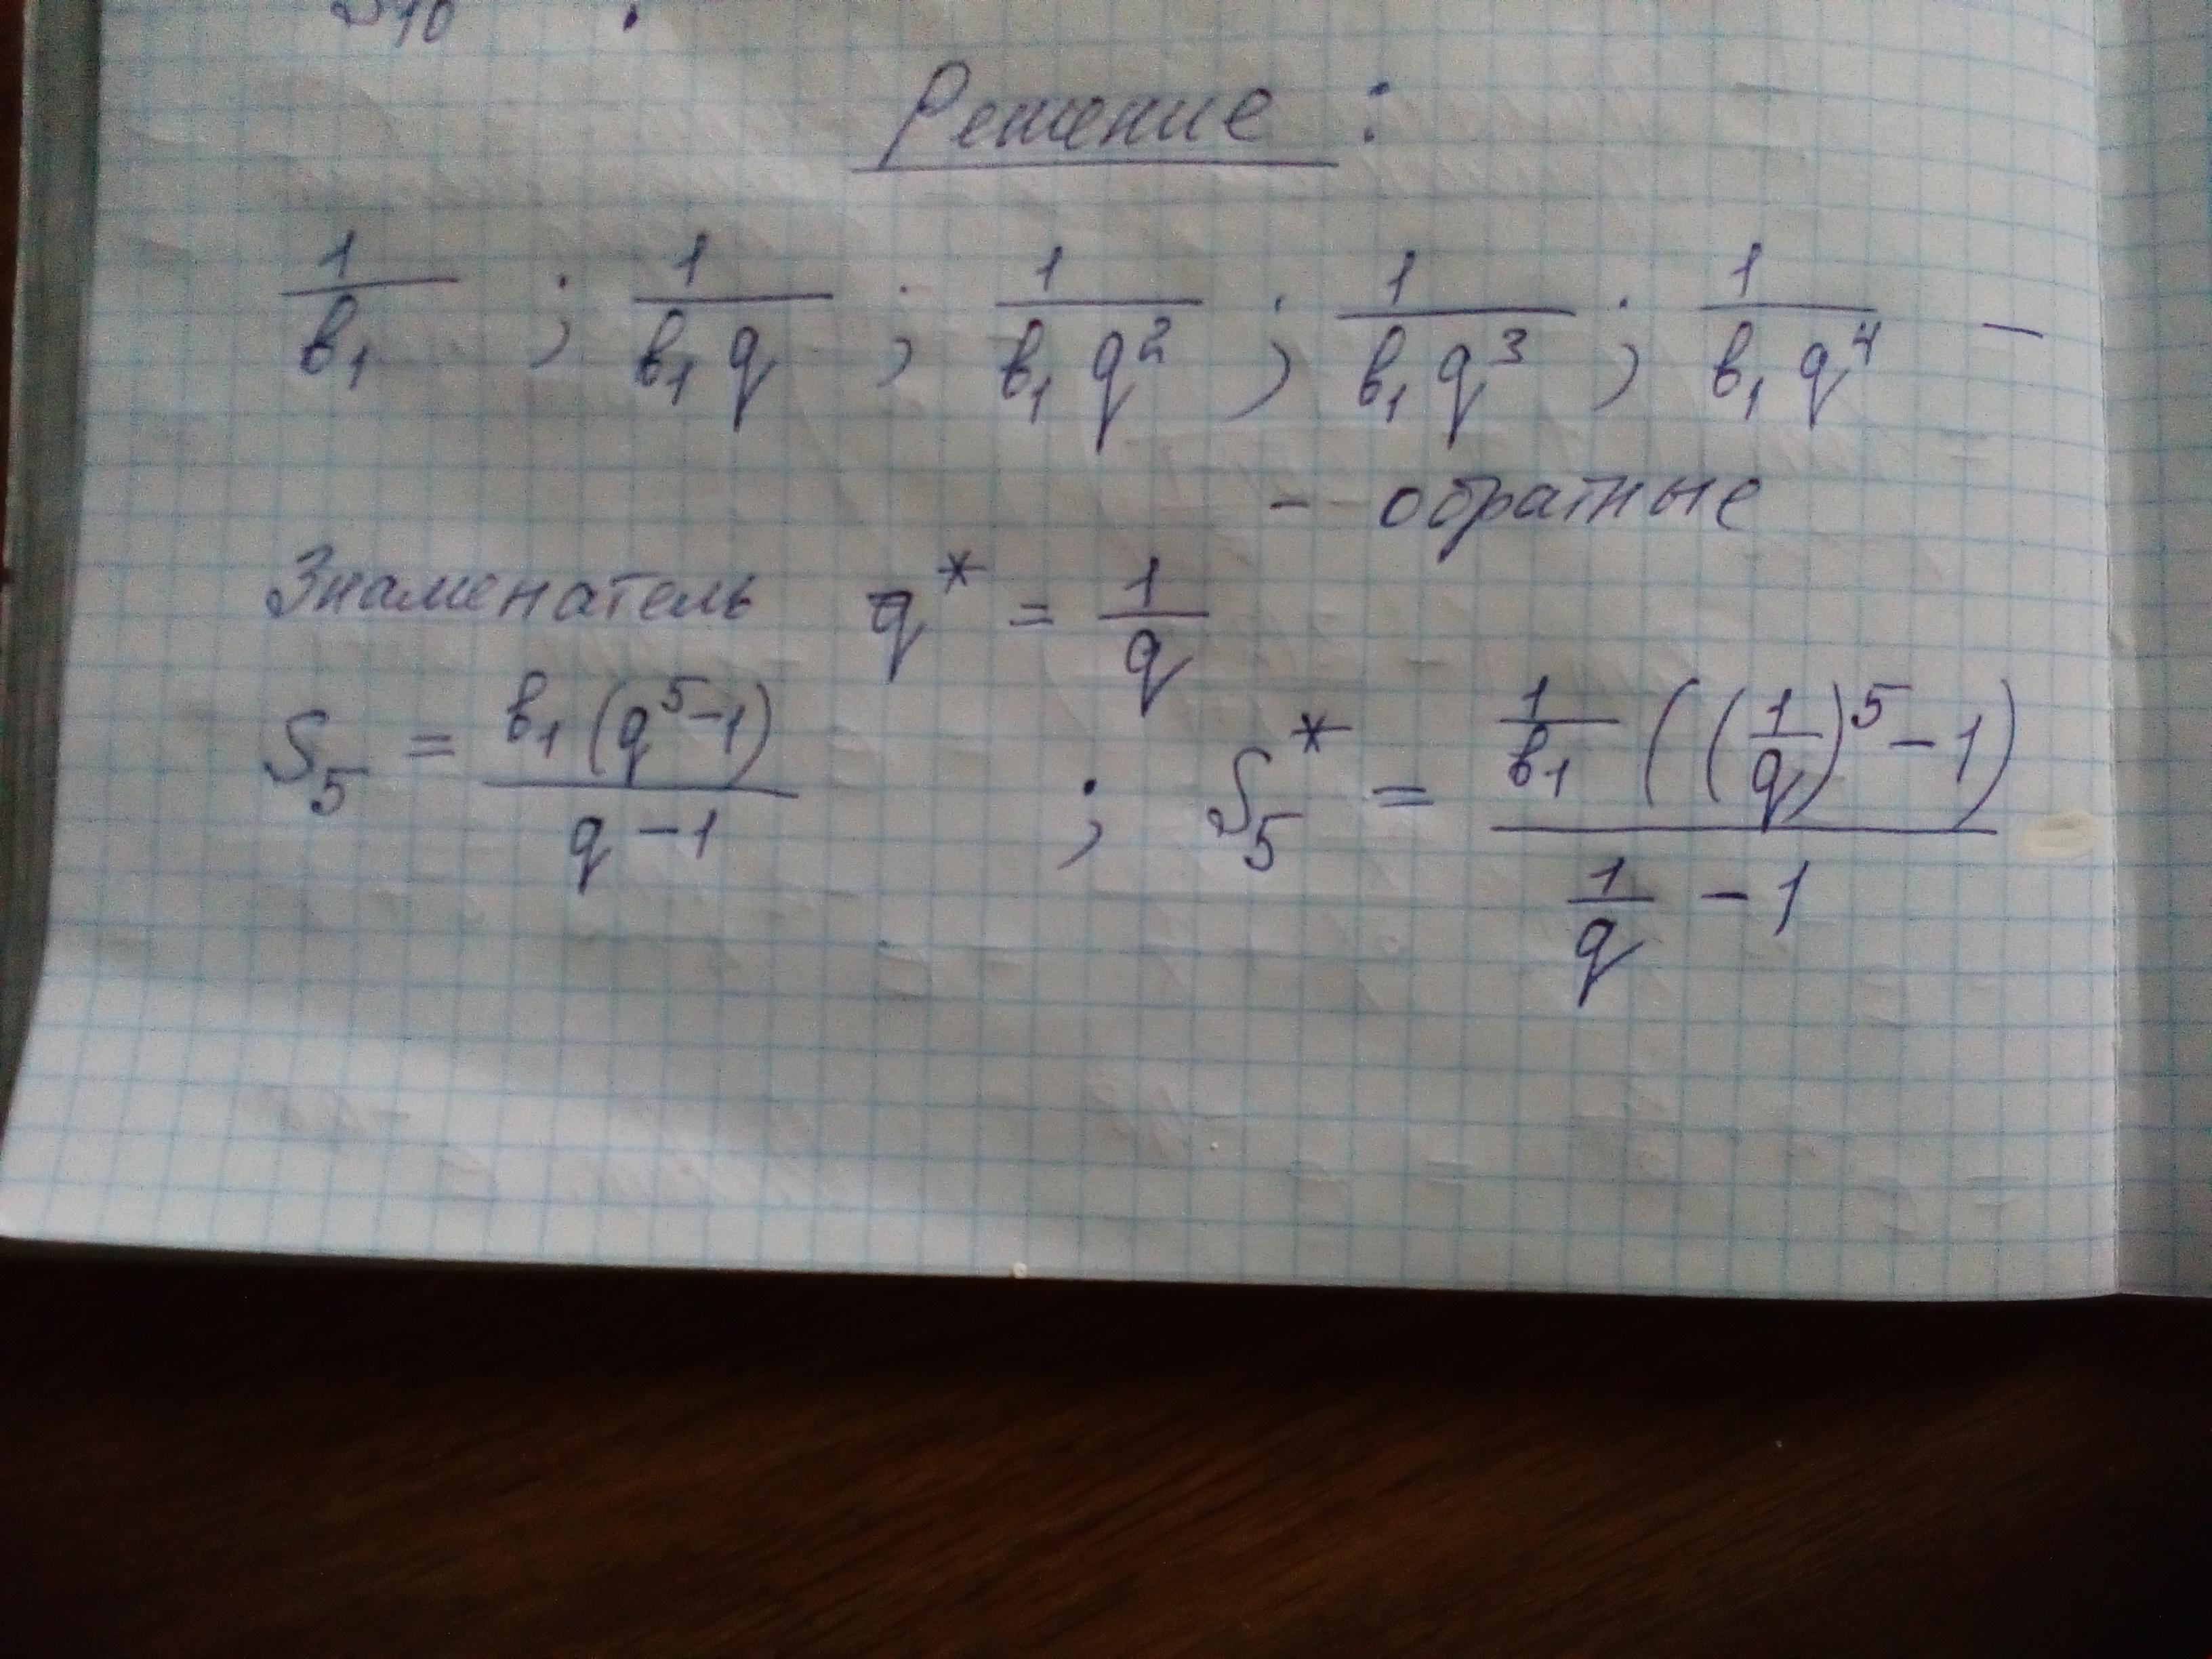 S₁₀ .
Решение :
1/b₁ ; 1/(b₁ q) ; 1/(b₁ q²) ; 1/(b₁ q³) ; 1/(b₁ q⁴) –
– обратные
Знаменатель q* = 1/q
S₅ = b₁(q⁵–1)/(q–1) ; S₅* = (1/b₁ ((1/q)⁵–1))/(1/q –1)